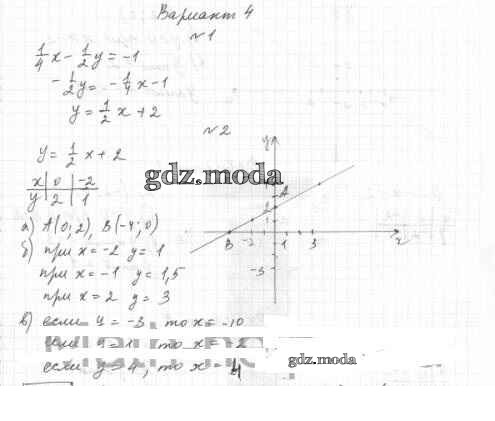 Вариант 4
№1
1/4 x - 1/2 y = -1
- 1/2 y = - 1/4 x - 1
y = 1/2 x + 2
№2
y = 1/2 x + 2
x | 0 | -2
y | 2 | 1
gdz.moda
y
A
2
1
B -2 1 3 x
-3
а) A(0; 2), B(-4; 0)
б) при x = -2 y = 1
при x = -1 y = 1,5
при x = 2 y = 3
в) если y = -3, то x = -10
если y = 1, то x = -2
если y = 4, то x = 4
gdz.moda